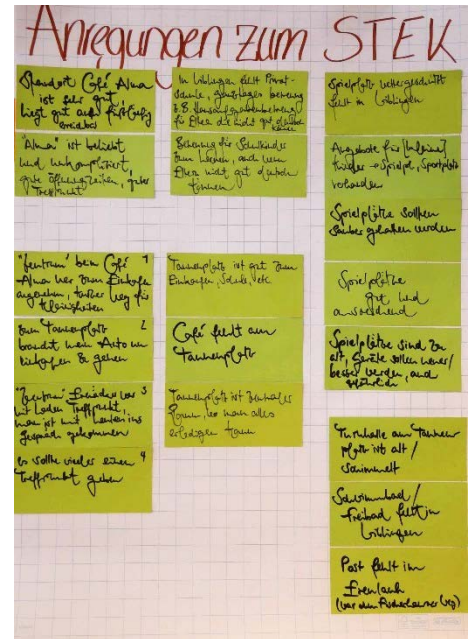 Anregungen zum STEK
Standort Café Alma
ist sehr gut
liegt gut auch fußläufig
erreichbar
"Alma" ist beliebt
und unkompliziert,
gute Öffnungszeiten, guter
Treffpunkt
"Zentrum" beim Café 1
Alma war zum Einkaufen
angenehm, kurzer Weg für
Kleinigkeiten
zum Tannenplatz 2
braucht man Auto um
einkaufen zu gehen
"Zentrum" war 3
mit Laden Treffpunkt,
man ist mit Leuten ins
Gespräch gekommen
es sollte wieder einen 4
Treffpunkt geben
In Wiblingen fehlt Privat-
schule, Ganztagesbetreuung
z.B. Hausaufgabenbetreuung
für Eltern die nicht gut deutsch
können
Betreuung für Schulkinder
zum Lernen, auch wenn
Eltern nicht gut deutsch
können
Tannenplatz ist gut zum
Einkaufen, Schule, etc.
Café fehlt am
Tannenplatz
Tannenplatz ist zentraler
wo man alles
erledigen kann
Spielplatz wettergeschützt
fehlt in Wiblingen
Angebote für
Kinder → Spielpl., Sportplatz
vorhanden
Spielplätze sollten
sauber gehalten werden
Spielplätze
gut und
ausreichend
Spielplätze sind zu
alt, Geräte sollen neuer/
besser werden, auch
Turnhalle am Tannen-
platz ist alt /
schimmelt
Schwimmbad /
Freibad fehlt in
Wiblingen
Post fehlt im
Erenlauh